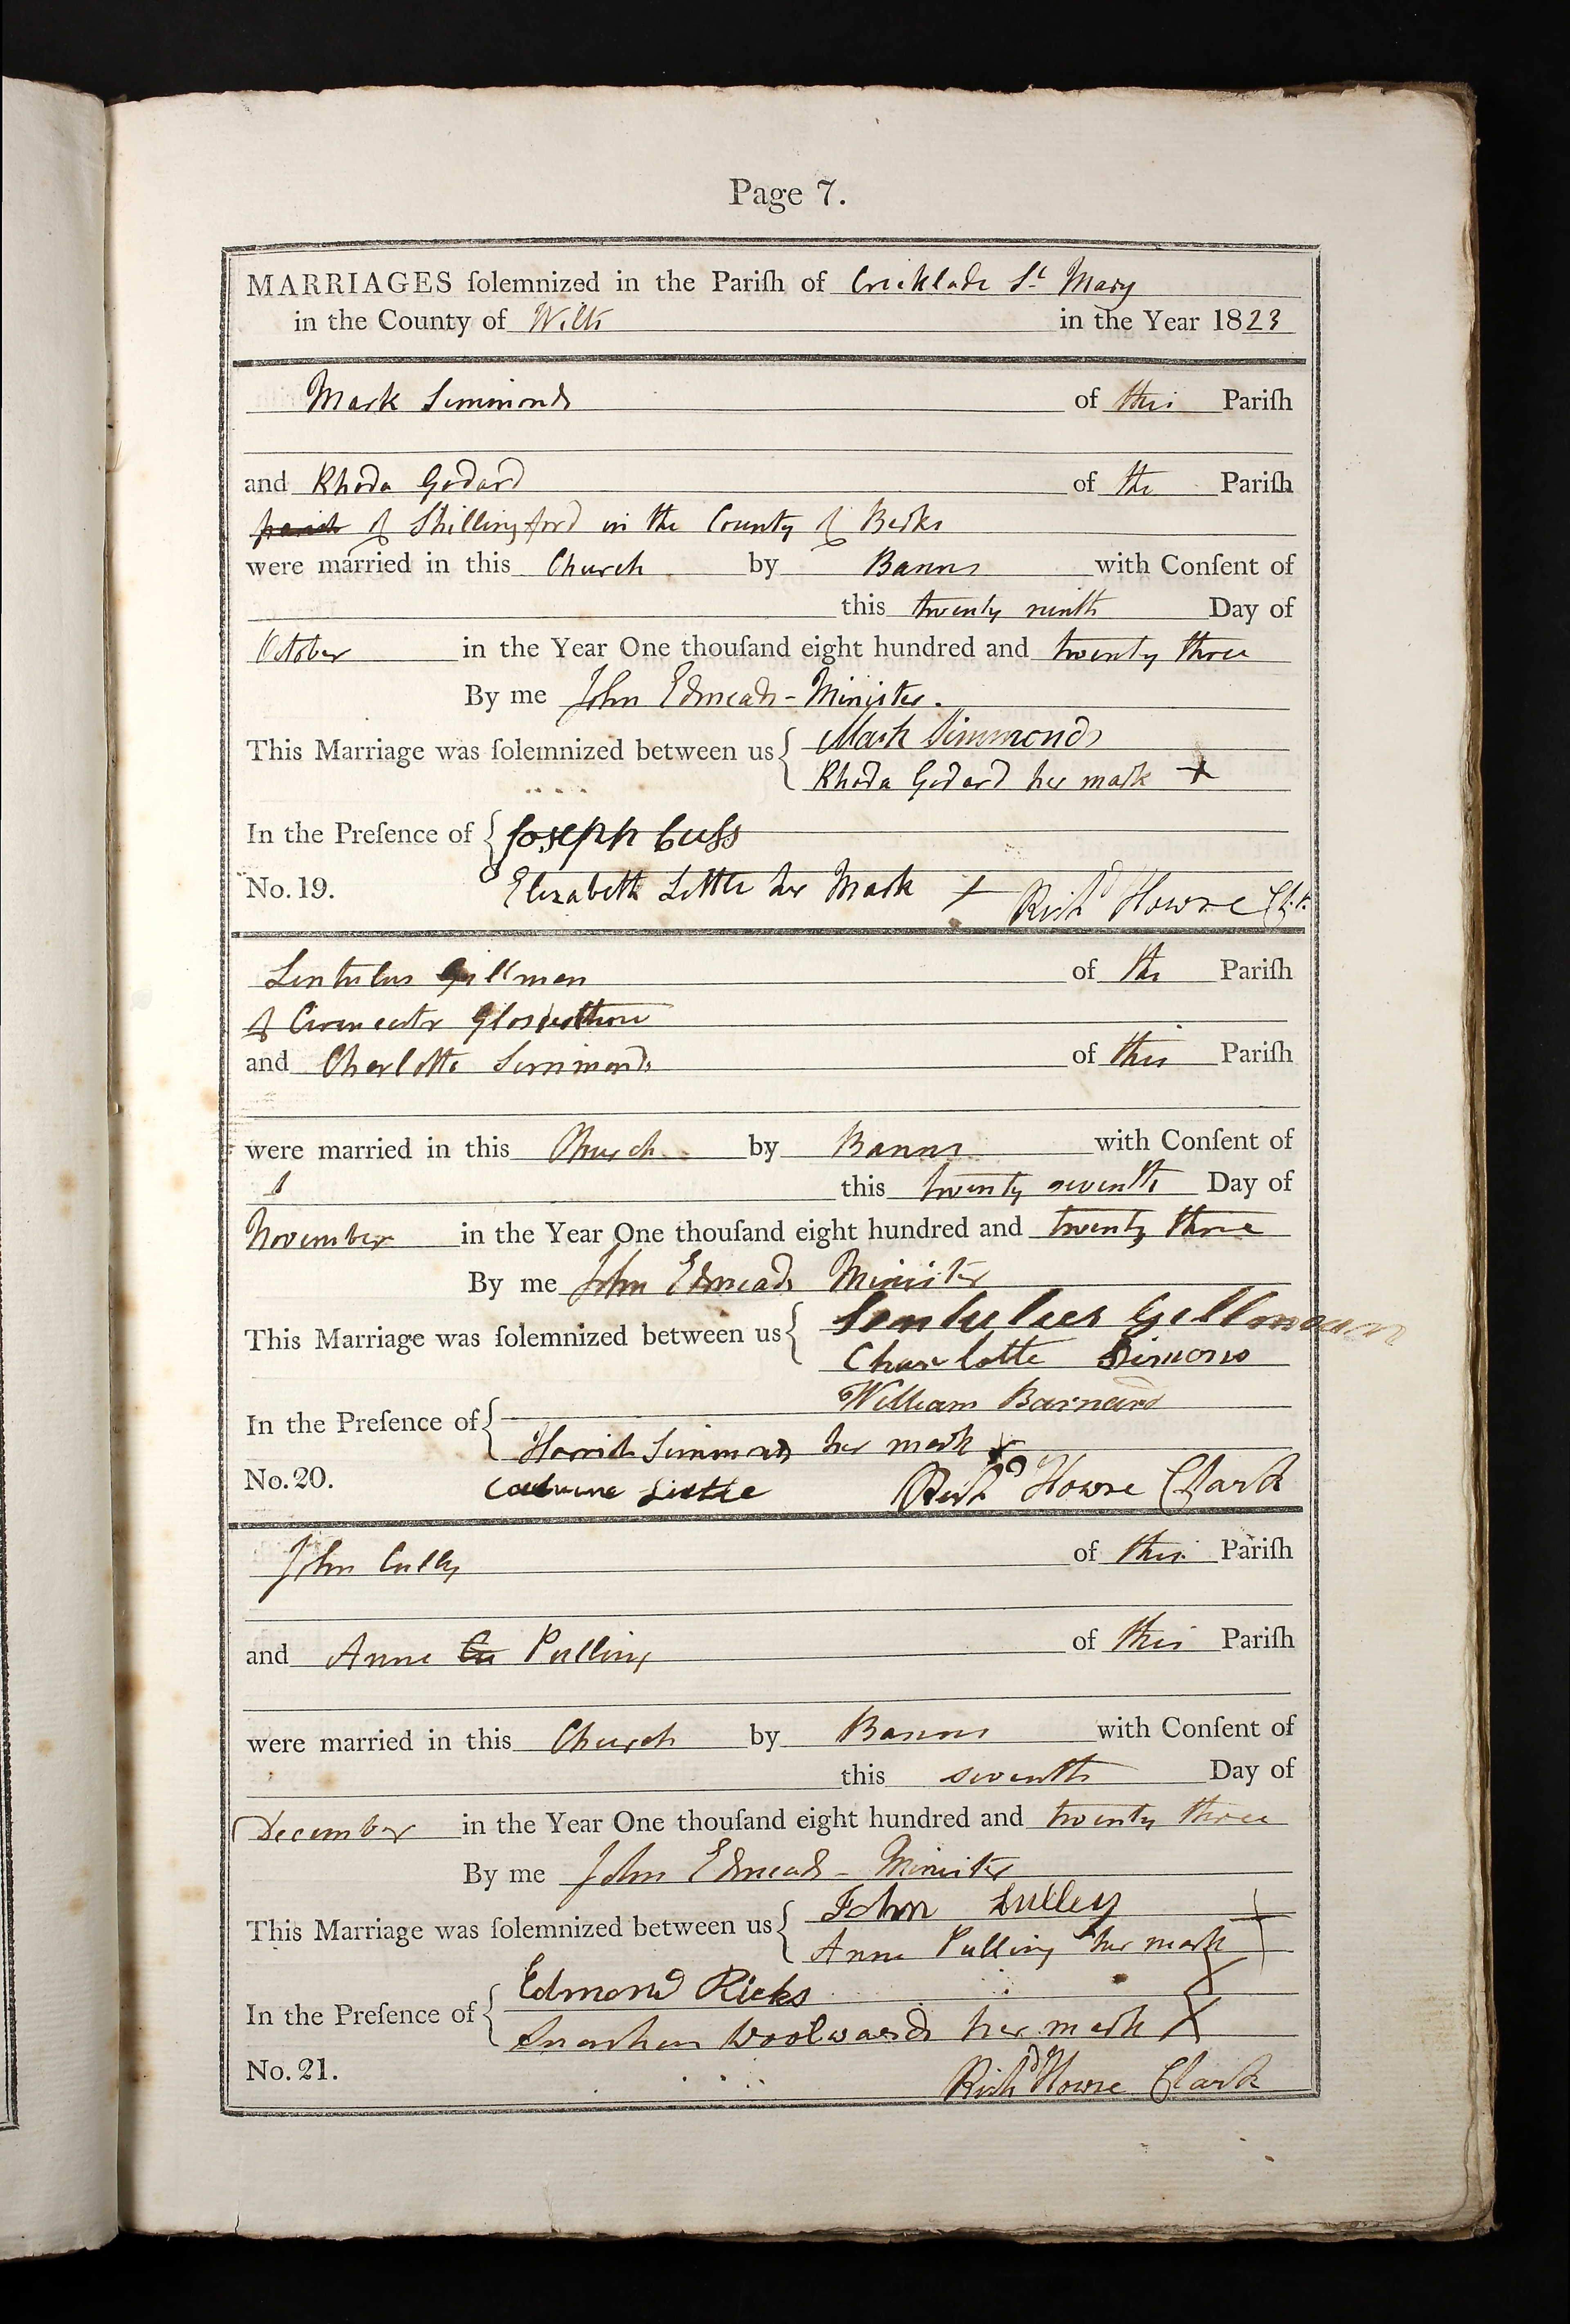 Page 7.
MARRIAGES ſolemnized in the Pariſh of Cricklade St Mary
in the County of Wilts in the Year 1823
Mark Simmonds of this Pariſh
and Rhoda Godard of the Pariſh
parish of Shillingford in the County of Berks
were married in this Church by Banns with Conſent of
this twenty ninth Day of
October in the Year One thouſand eight hundred and twenty three
By me John Edmeads - Minister.
This Marriage was ſolemnized between us { Mark Simmonds
Rhoda Godard her mark +
In the Preſence of { Joseph Cuss
No. 19. Elizabeth Little her Mark + Richd Howse Clk
Lentulus Gillman of the Pariſh
of Cirencester
and Charlotte Simmonds of this Pariſh
were married in this Church by Banns with Conſent of
this twenty seventh Day of
November in the Year One thouſand eight hundred and twenty three
By me John Edmeads Minister
This Marriage was ſolemnized between us { Lentulees Gillmoun
Charlotte Simons
William Barnard
In the Preſence of { Simmonds her mark +
No. 20. Little Richd Howse Clark
John Cully of this Pariſh
and Anne Cu Pulling of this Pariſh
were married in this Church by Banns with Conſent of
this seventh Day of
December in the Year One thouſand eight hundred and twenty three
By me John Edmeads - Minister
This Marriage was ſolemnized between us { John Culley
Anne Pulling her mark X
In the Preſence of { Edmond Ricks
Woolwards her mark X
No. 21. Richd Howse Clark